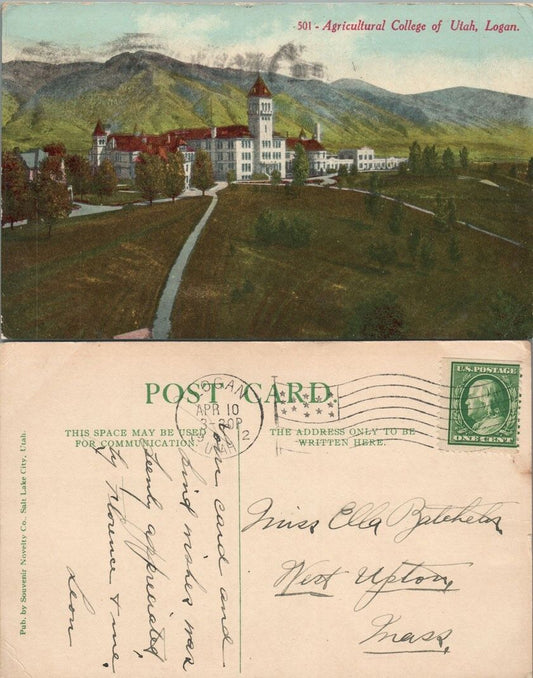 501 - Agricultural College of Utah, Logan.
POST CARD.
THIS SPACE MAY BE USED
FOR COMMUNICATION.
THE ADDRESS ONLY TO BE
WRITTEN HERE.
LOGAN
APR 10
3-30P
UTAH
U.S. POSTAGE
ONE CENT
Pub. by Souvenir Novelty Co. Salt Lake City, Utah.
Your card and
kind wishes was
keenly appreciated,
by Florence & me.
Leon
Miss Ella Batchelor
West Upton,
Mass.